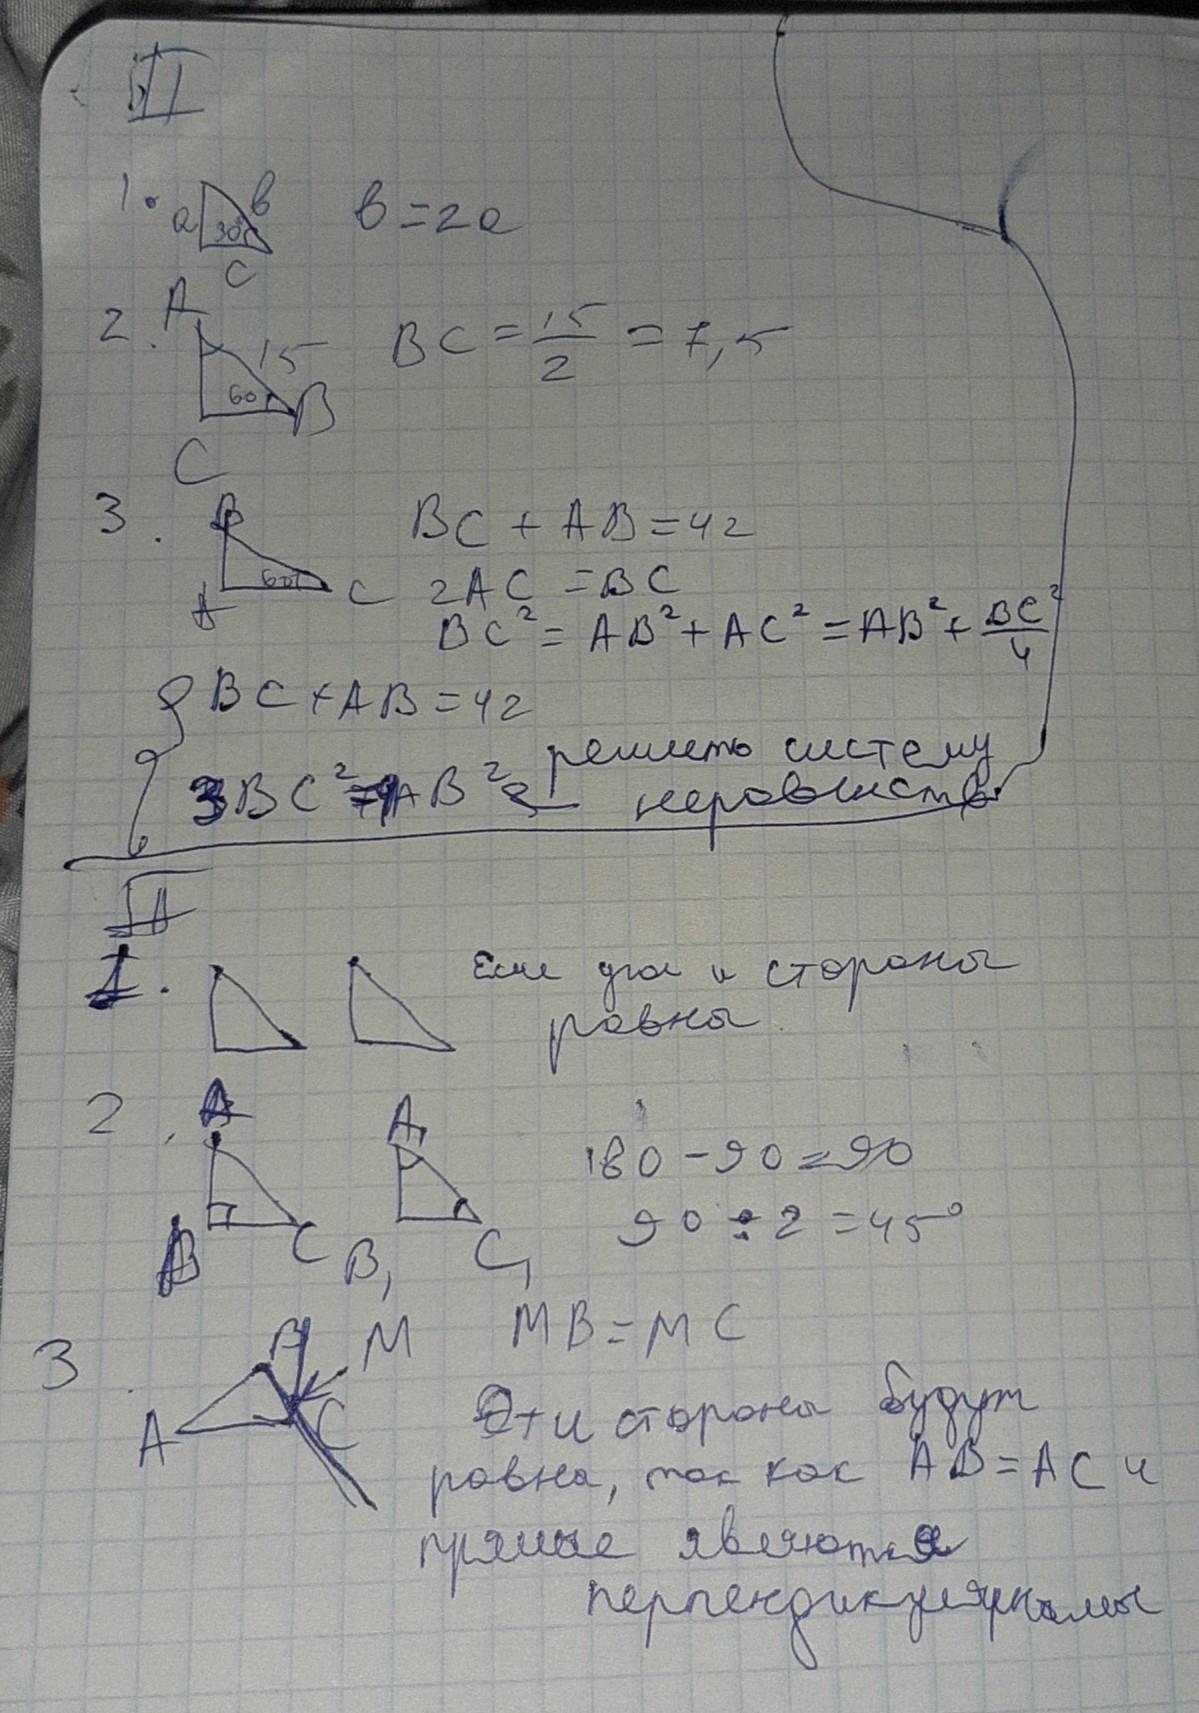 VI
1. a b 30° c b = 2a
2. A 15 60 B C BC = 15/2 = 7,5
3. B 60 A C BC + AB = 42
2AC = BC
BC² = AB² + AC² = AB² + BC²/4
BC + AB = 42
3BC² = 4AB² решить систему
неравенств
1. Если угол и стороны
равны.
2. A B C A₁ B₁ C₁ 180 - 90 = 90
90 : 2 = 45°
3. A B C M MB = MC
Эти стороны будут
равны, так как AB = AC и
прямые являются
перпендикулярными